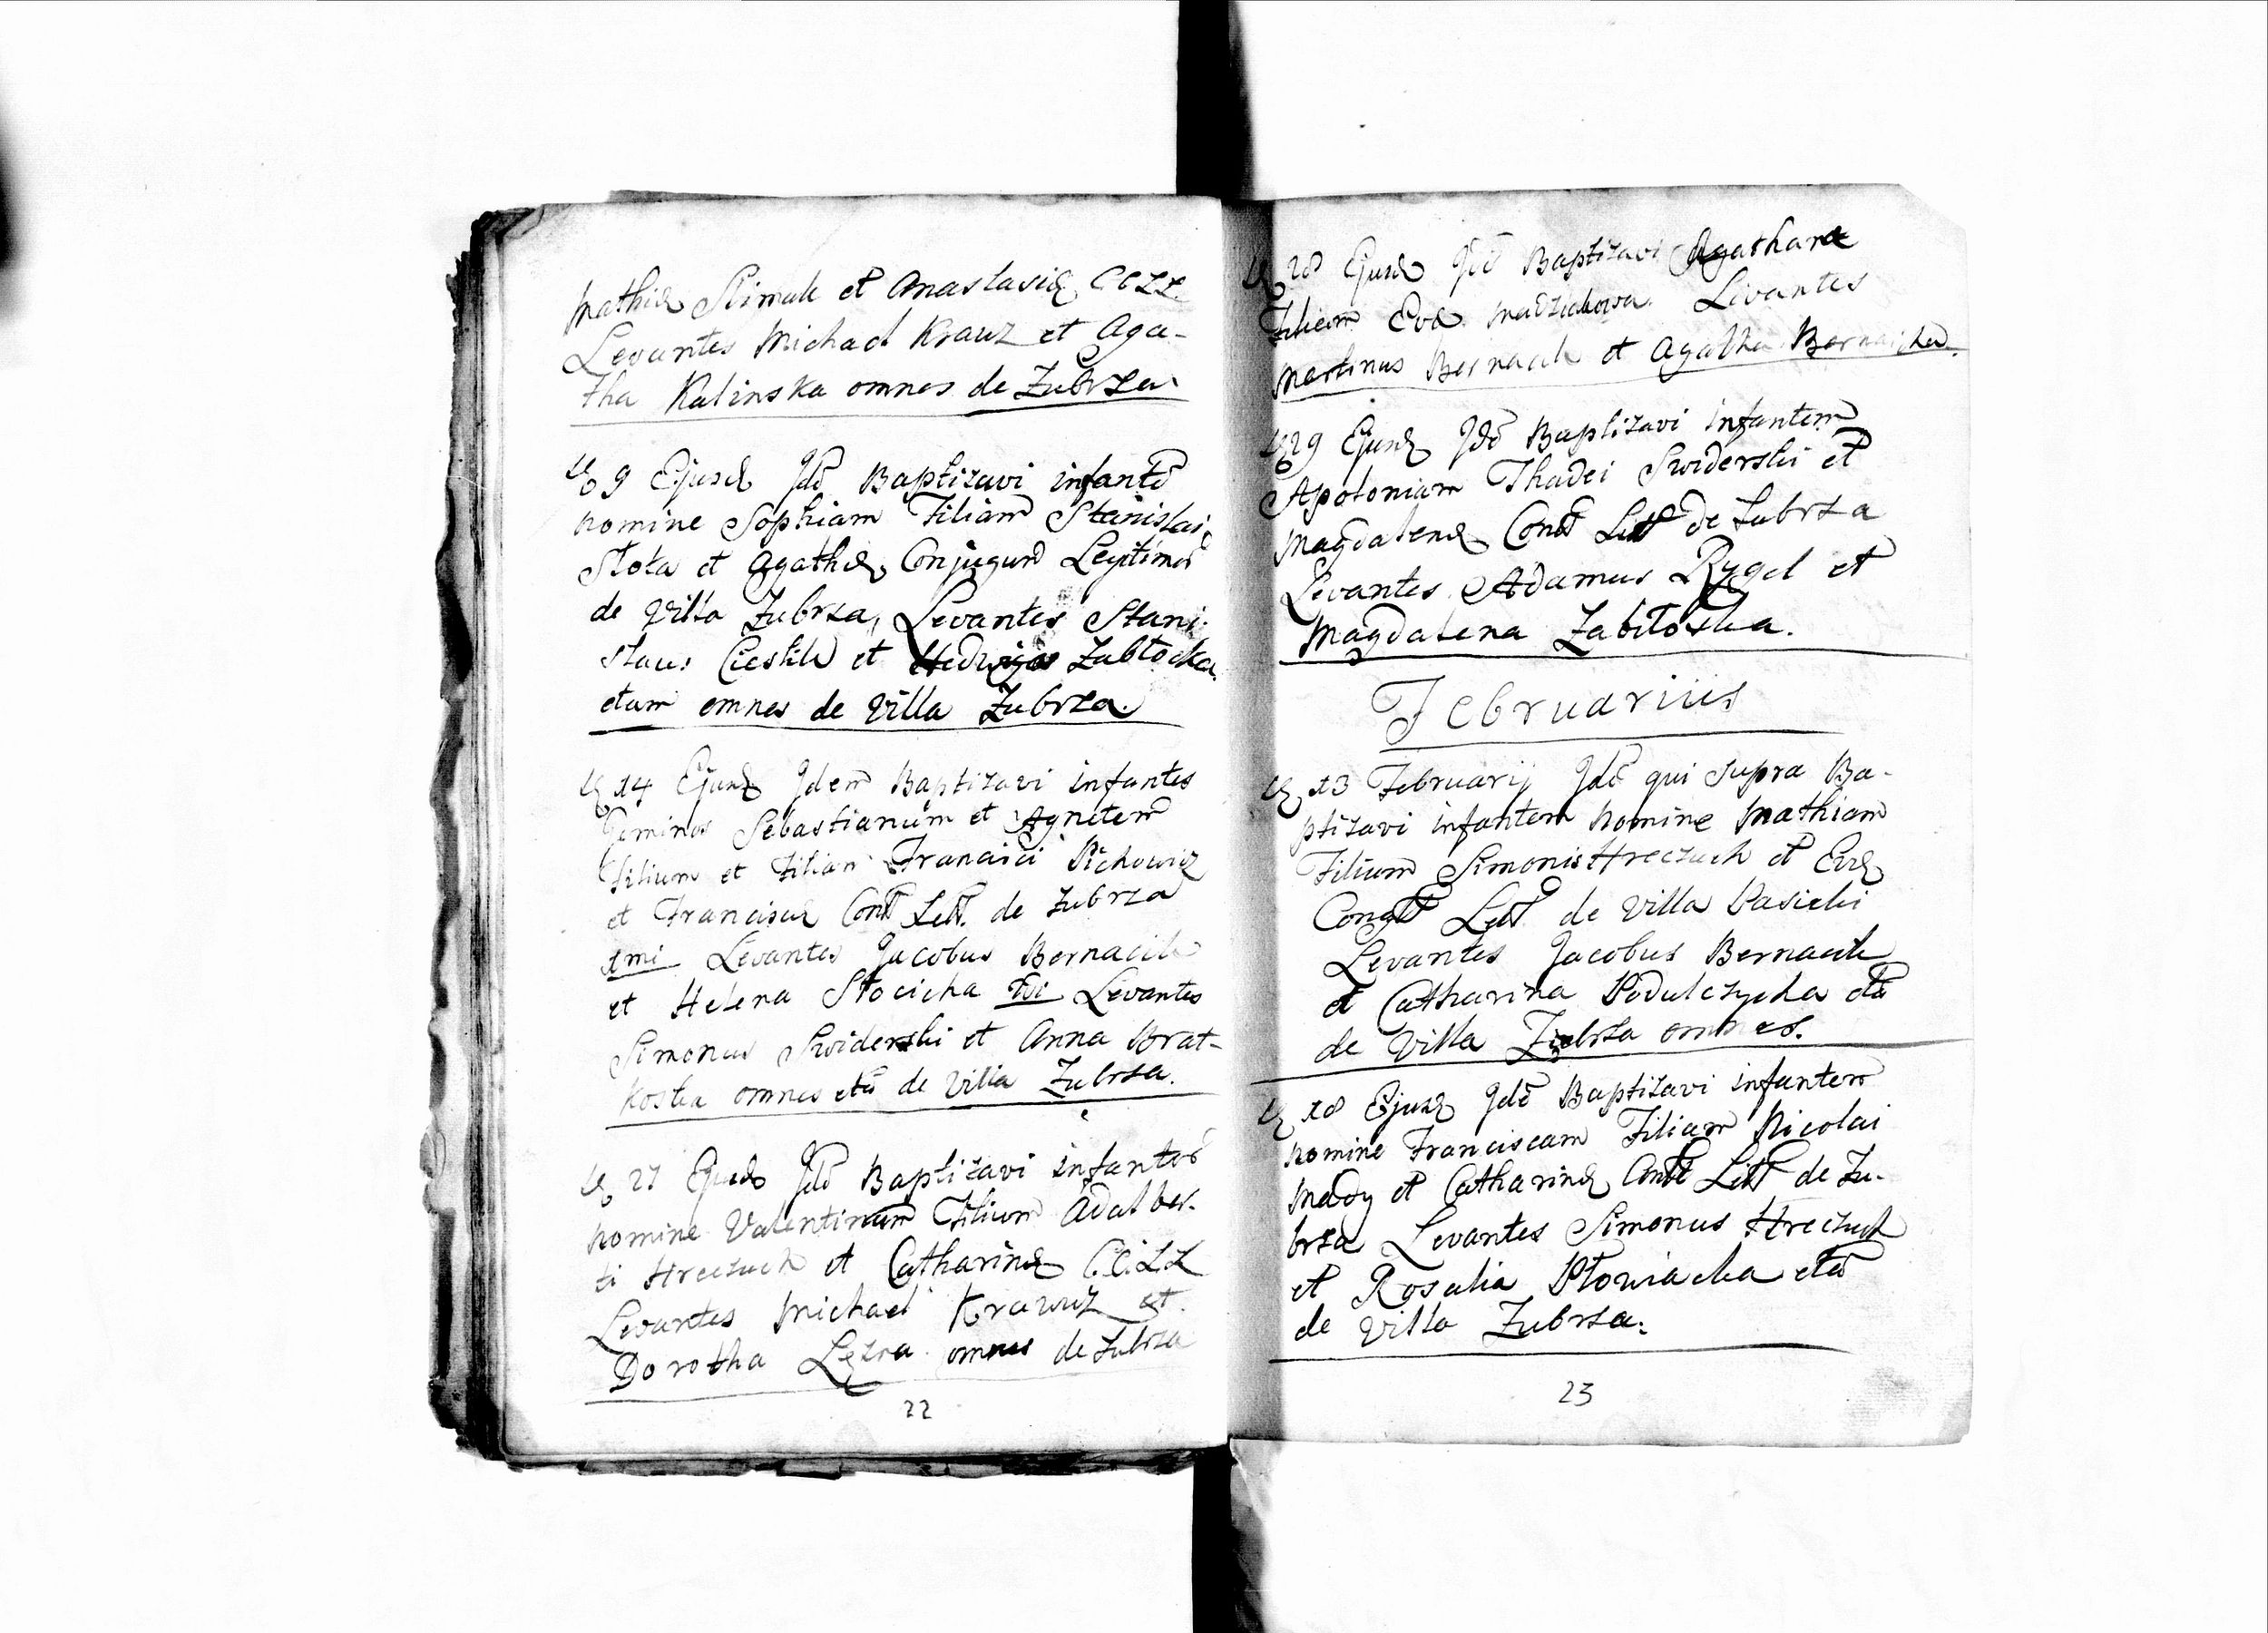 Mathiæ Slimak et Anastasiæ CCLL.
Levantes Michael Krauz et Aga-
tha Kalinska omnes de Zubrza.
9 Ejusd Jdē Baptizavi infantē
nomine Sophiam Filiam Stanislai
Słota et Agathæ Conjugum Legitimor
de Villa Zubrza, Levantes Stani-
slaus Cieslik et Hedwigis Zabłocka
etam omnes de Villa Zubrza.
14 Ejusd Jdem Baptizavi infantes
Geminos Sebastianum et Agnetem
Filium et Filiam Francisci Pichowicz
et Franciscæ Conᵗ Leᵗᵗ. de Zubrza
1mi Levantes Jacobus Bernacik
et Helena Słocicha 2di Levantes
Simonus Swiderski et Anna Brat-
koska omnes etā de Villa Zubrza.
27 Ejusd Jdē Baptizavi infantē
nomine Valentinum Filium Adalber-
ti Hreczuch et Catharinæ C.C.L.L
Levantes Michael Krawuz et
Dorotha Lęzna omnes de Zubrza
22
28 Ejusd Jdē Baptizavi Agatham
Filiam Evæ Levantes
Martinus Bernacik et Agatha Bernaicka.
29 Ejusd Jdē Baptizavi infantem
Apoloniam Thadei Swiderski et
Magdalenæ Conᵗ Leᵗᵗ de Zubrza
Levantes Adamus Rygel et
Magdalena Zabłotska.
Februarius
13 Februarij Jdē qui supra Ba-
ptizavi infantem nomine Mathiam
Filium Simonis Hreczuch et Evæ
Congᵗ Leᵗᵗ de Villa Pasieki
Levantes Jacobus Bernacik
et Catharina Podulczycka etā
de Villa Zubrza omnes.
18 Ejusd Jdē Baptizavi infantem
nomine Franciscam Filiam Nicolai
Mady et Catharinæ Conᵗ Leᵗᵗ de Zu-
brza Levantes Simonus Hreczuch
et Rosalia Słowiacka etā
de Villa Zubrza.
23